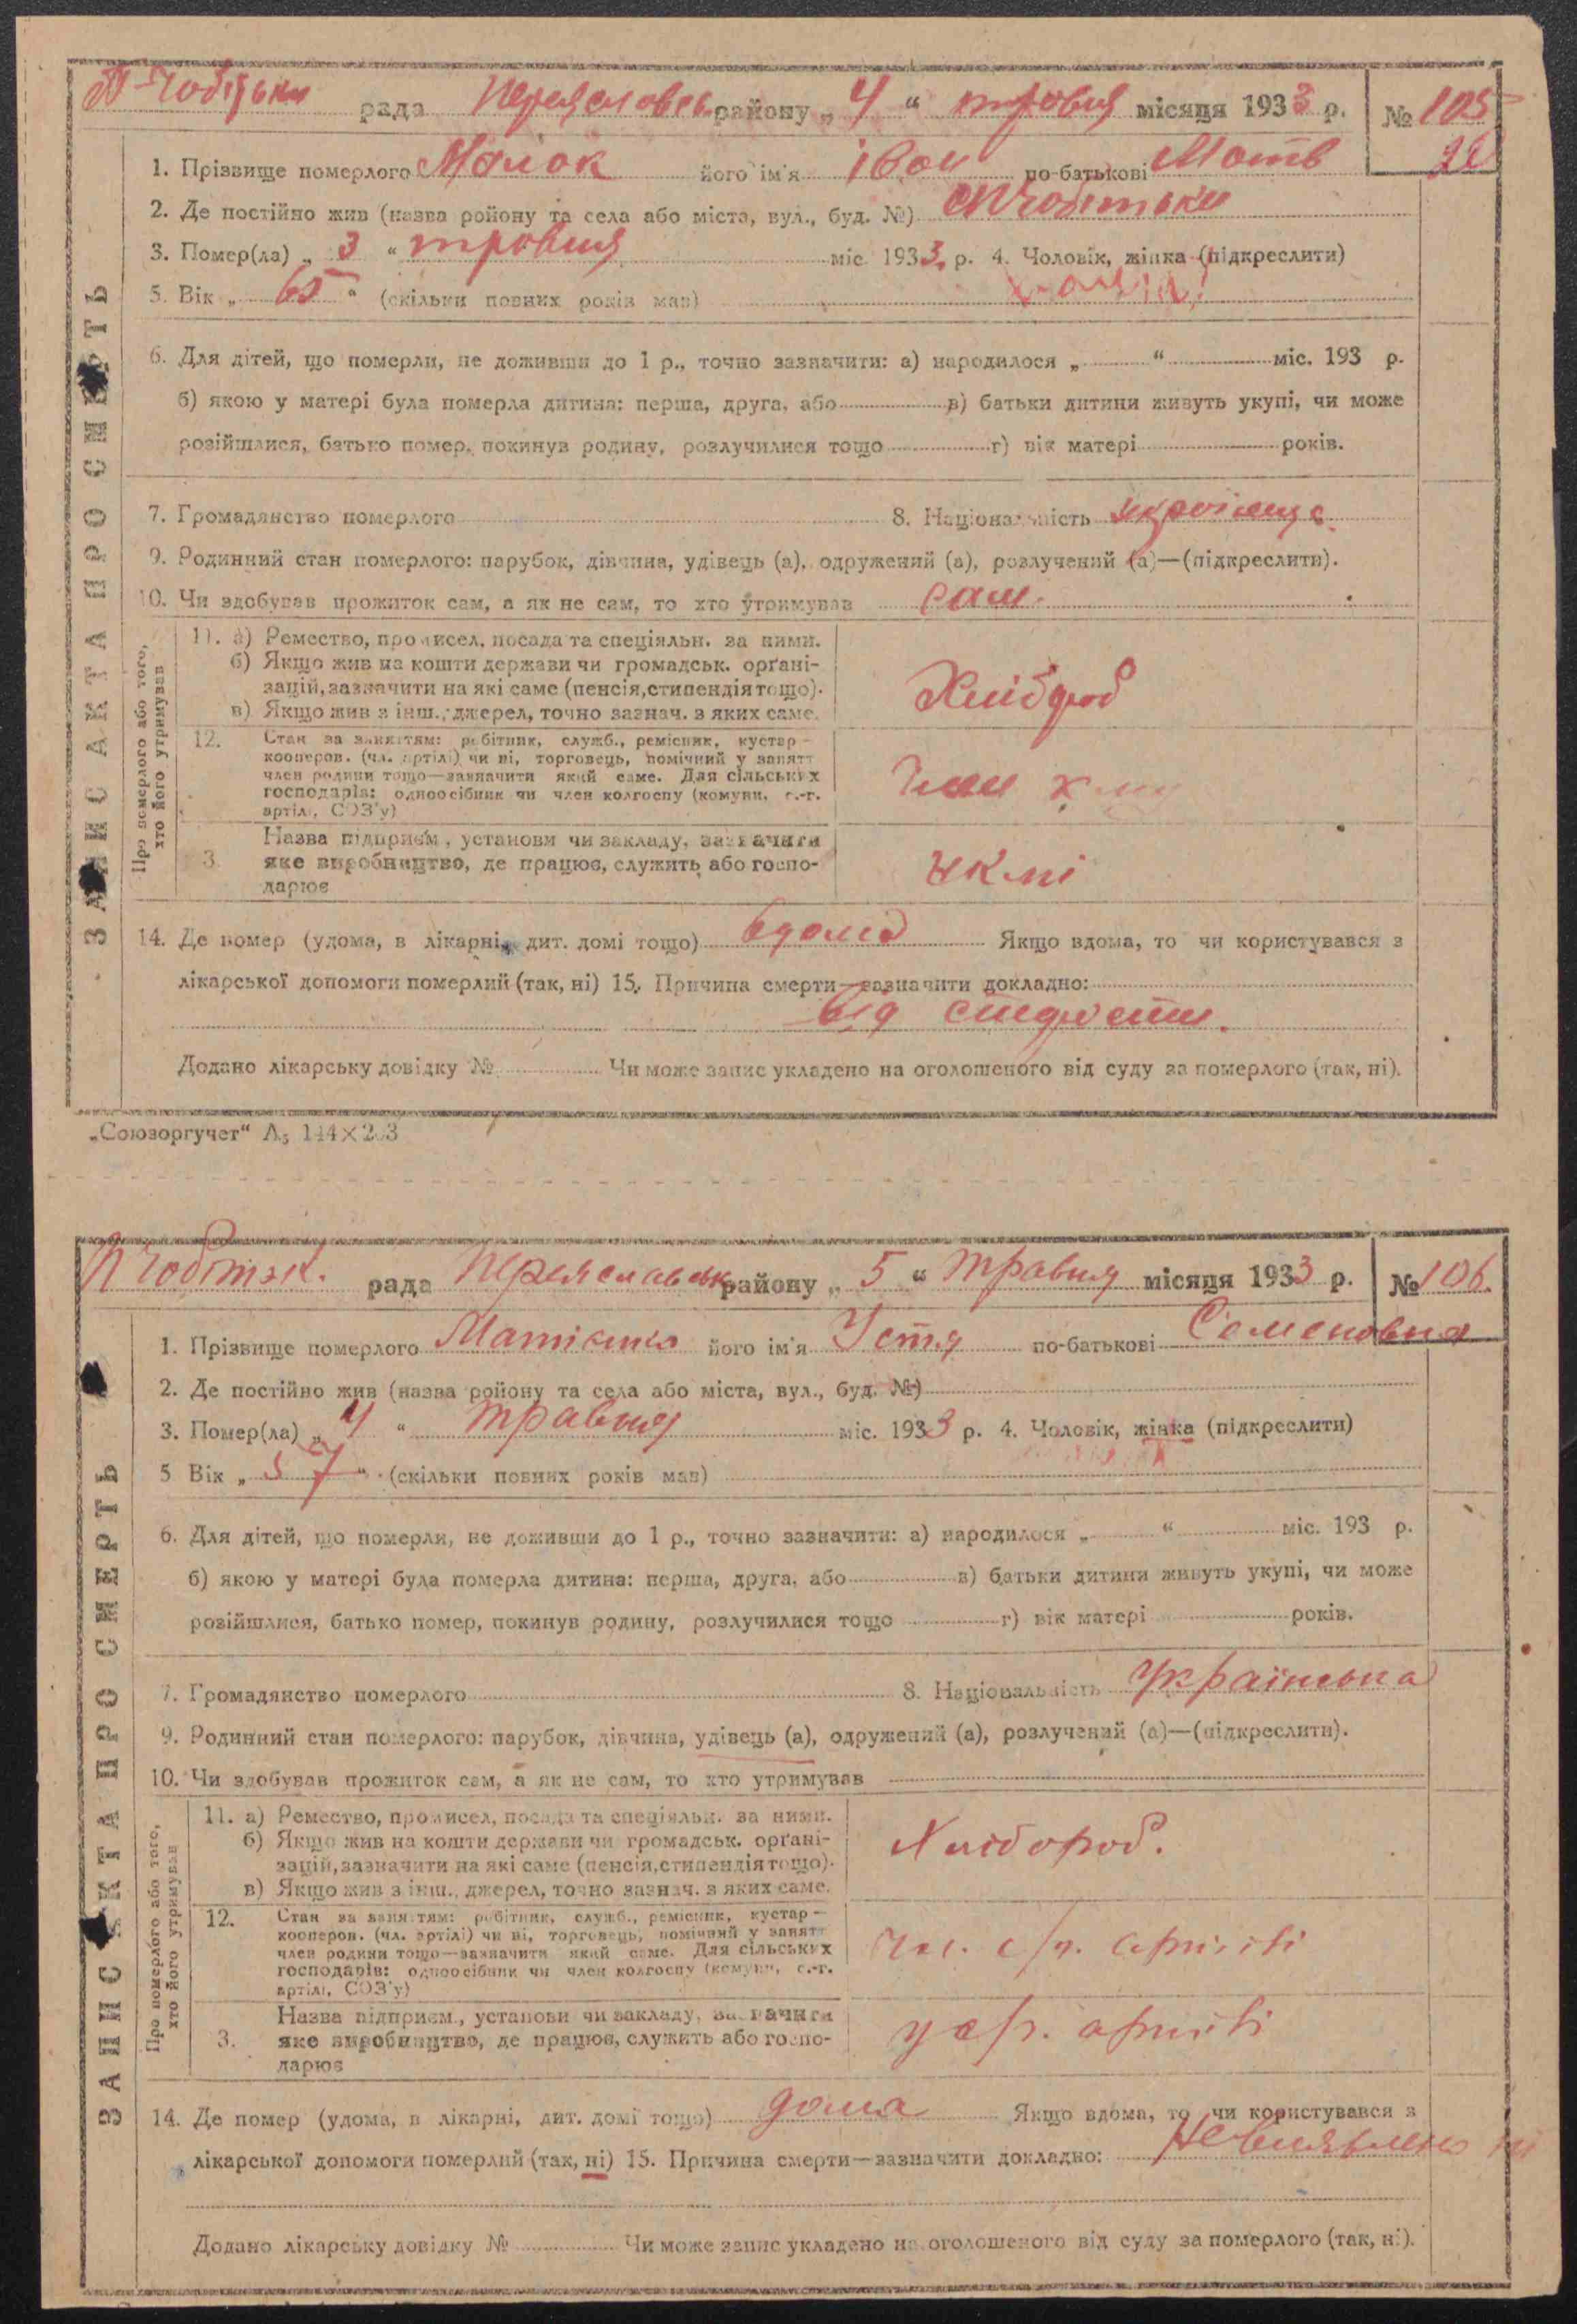 рада Переяславськ району „ 4 “ травня місяця 1933 р. № 105
26
1. Прізвище померлого Малюк його ім'я Іван по-батькові Матв
2. Де постійно жив (назва району та села або міста, вул., буд. №)
3. Помер(ла) „ 3 “ травня міс. 1933 р. 4. Чоловік, жінка (підкреслити)
5. Вік „ 65 “ (скільки повних років мав)
6. Для дітей, що померли, не доживши до 1 р., точно зазначити: а) народилося „ “ міс. 193 р.
б) якою у матері була померла дитина: перша, друга, або в) батьки дитини живуть укупі, чи може
розійшлися, батько помер, покинув родину, розлучилися тощо г) вік матері років.
7. Громадянство померлого 8. Національність
9. Родинний стан померлого: парубок, дівчина, удівець (а), одружений (а), розлучений (а)—(підкреслити).
10. Чи здобував прожиток сам, а як не сам, то хто утримував сам.
ЗАПИС АКТА ПРО СМЕРТЬ
Про померлого або того,
хто його утримував
11. а) Ремество, промисел, посада та спеціяльн. за ними.
б) Якщо жив на кошти держави чи громадськ. орґані-
зацій, зазначити на які саме (пенсія, стипендія тощо).
в) Якщо жив з інш., джерел, точно зазнач. з яких саме.
Хлібороб
12. Стан за заняттям: робітник, служб., ремісник, кустар—
кооперов. (чл. артілі) чи ні, торговець, помічний у занятт
член родини тощо—зазначити який саме. Для сільських
господарів: одноосібник чи член колгоспу (комуни, с.-г.
артілі, СОЗ'у)
Член
3. Назва підприєм., установи чи закладу, зазначити
яке виробництво, де працює, служить або госпо-
дарює
14. Де помер (удома, в лікарні, дит. домі тощо) вдома Якщо вдома, то чи користувався з
лікарської допомоги померлий (так, ні) 15. Причина смерти—зазначити докладно:
від старости.
Додано лікарську довідку № Чи може запис укладено на оголошеного від суду за померлого (так, ні).
„Союзоргучет“ А5 144×203
рада Переяславськ району „ 5 “ травня місяця 1933 р. № 106.
1. Прізвище померлого його ім'я Устя по-батькові Семеновна
2. Де постійно жив (назва району та села або міста, вул., буд. №)
3. Помер(ла) „ 4 “ травня міс. 1933 р. 4. Чоловік, жінка (підкреслити)
5 Вік „ 57 “ (скільки повних років мав)
6. Для дітей, що померли, не доживши до 1 р., точно зазначити: а) народилося „ “ міс. 193 р.
б) якою у матері була померла дитина: перша, друга, або в) батьки дитини живуть укупі, чи може
розійшлися, батько помер, покинув родину, розлучилися тощо г) вік матері років.
7. Громадянство померлого 8. Національність Українська
9. Родинний стан померлого: парубок, дівчина, удівець (а), одружений (а), розлучений (а)—(підкреслити).
10. Чи здобував прожиток сам, а як не сам, то хто утримував
ЗАПИС АКТА ПРО СМЕРТЬ
Про померлого або того,
хто його утримував
11. а) Ремество, промисел, посада та спеціяльн. за ними.
б) Якщо жив на кошти держави чи громадськ. орґані-
зацій, зазначити на які саме (пенсія, стипендія тощо).
в) Якщо жив з інш., джерел, точно зазнач. з яких саме.
Хлібороб.
12. Стан за заняттям: робітник, служб., ремісник, кустар—
кооперов. (чл. артілі) чи ні, торговець, помічний у занятт
член родини тощо—зазначити який саме. Для сільських
господарів: одноосібник чи член колгоспу (комуни, с.-г.
артілі, СОЗ'у)
чл. с/г. артілі
3. Назва підприєм., установи чи закладу, зазначити
яке виробництво, де працює, служить або госпо-
дарює
у с/г. артілі
14. Де помер (удома, в лікарні, дит. домі тощо) дома Якщо вдома, то чи користувався з
лікарської допомоги померлий (так, ні) 15. Причина смерти—зазначити докладно: Невиявлено
Додано лікарську довідку № Чи може запис укладено на оголошеного від суду за померлого (так, ні).